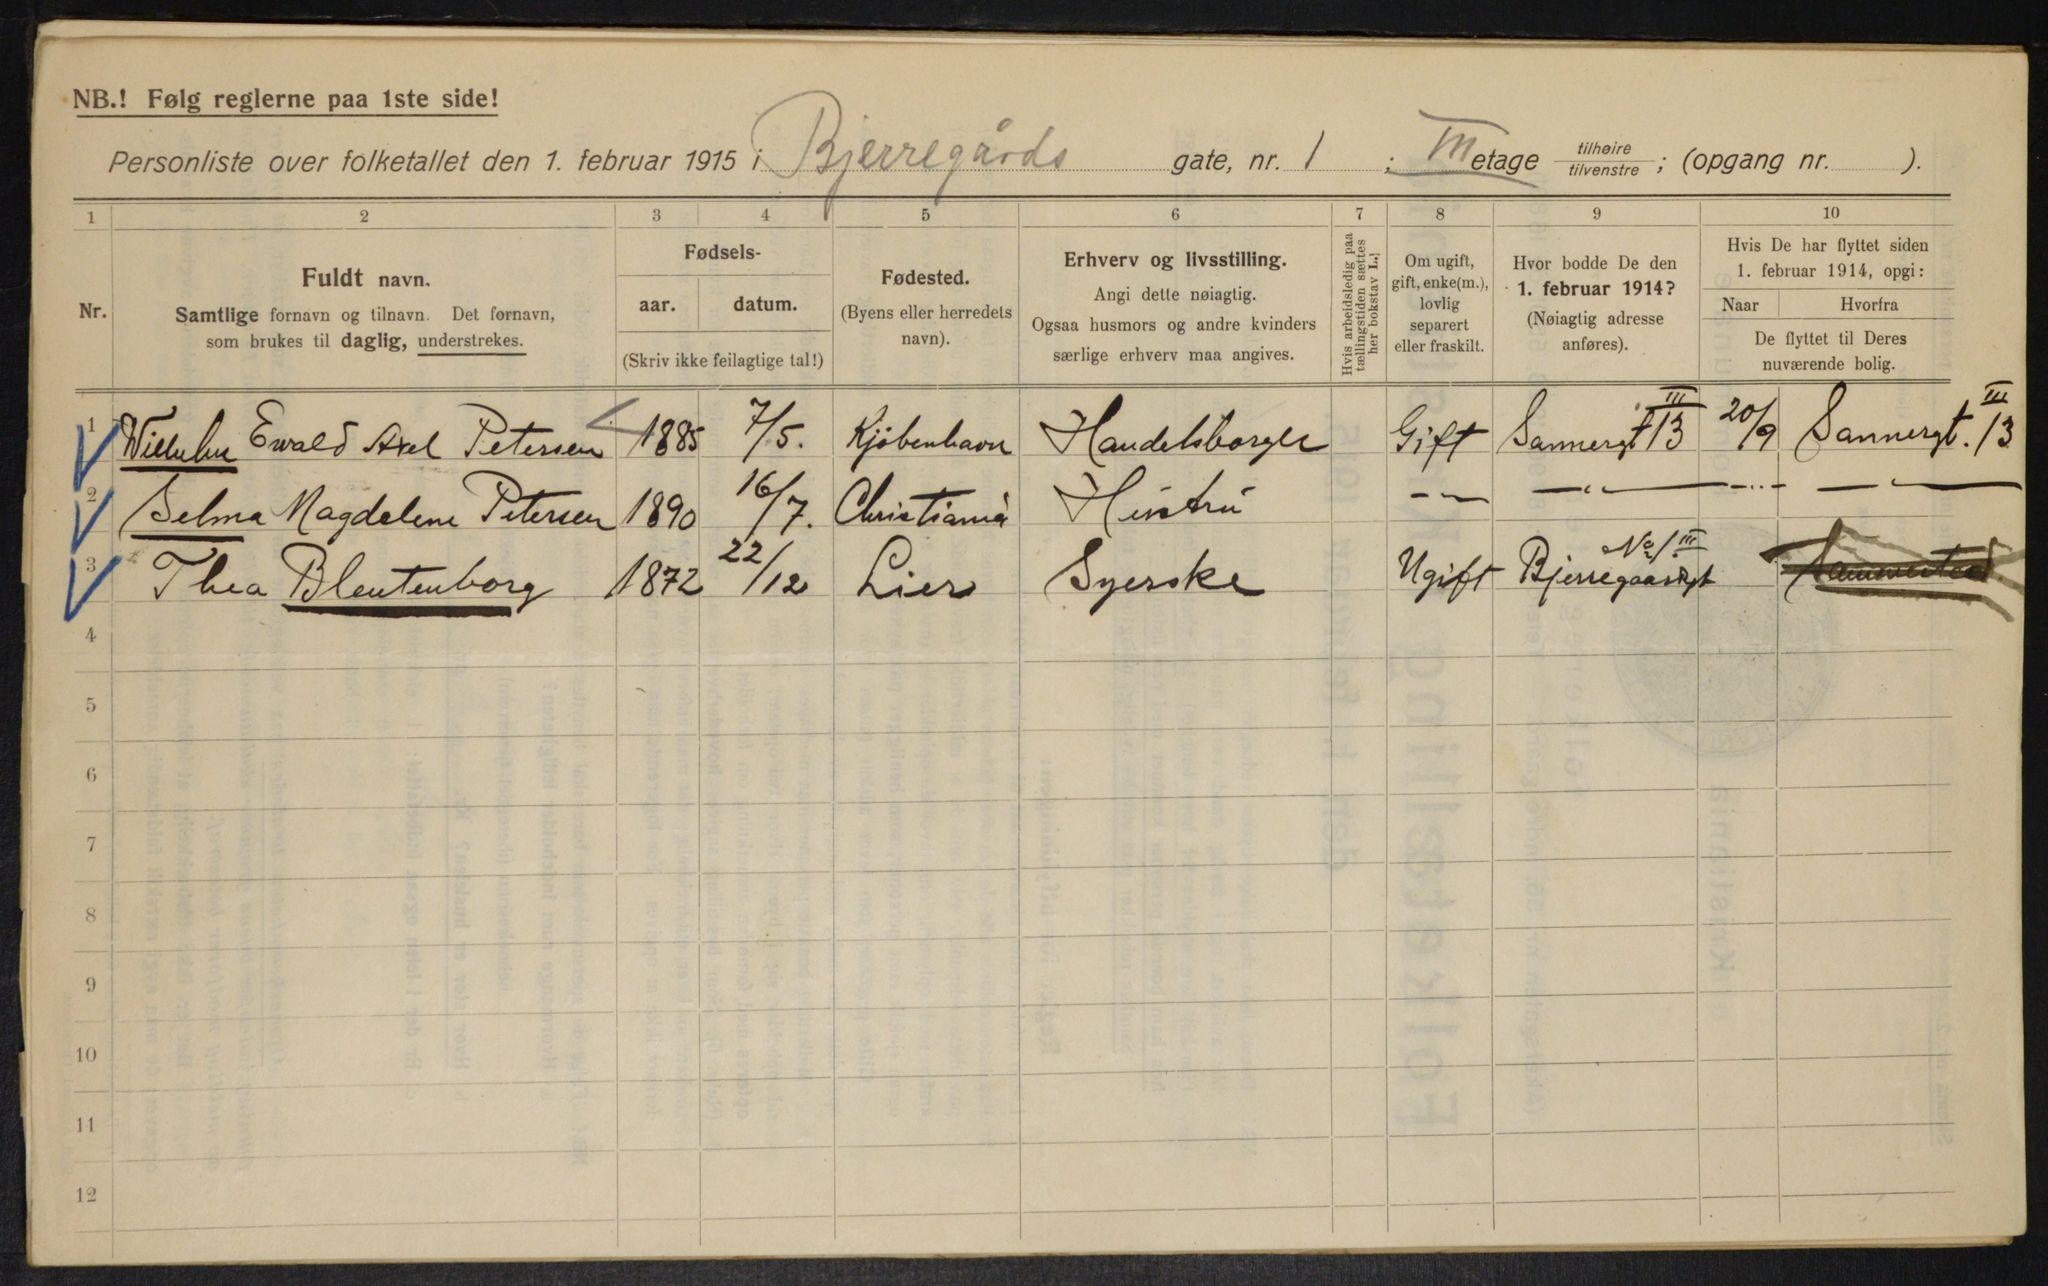 NB.! Følg reglerne paa 1ste side!
Personliste over folketallet den 1. februar 1915 i Bjerregårds gate, nr. 1 ; III etage tilhøire tilvenstre ; (opgang nr. ).
1 2 3 4 5 6 7 8 9 10
Nr.
Fuldt navn.
Samtlige fornavn og tilnavn. Det fornavn,
som brukes til daglig, understrekes.
Fødsels-
aar. datum.
(Skriv ikke feilagtige tal!)
Fødested.
(Byens eller herredets
navn).
Erhverv og livsstilling.
Angi dette nøiagtig.
Ogsaa husmors og andre kvinders
særlige erhverv maa angives.
Hvis arbeidsledig paa
tællingstiden sættes
her bokstav L.!
Om ugift,
gift, enke(m.),
lovlig
separert
eller fraskilt.
Hvor bodde De den
1. februar 1914?
(Nøiagtig adresse
anføres).
Hvis De har flyttet siden
1. februar 1914, opgi:
Naar Hvorfra
De flyttet til Deres
nuværende bolig.
1 Wilhelm Ewald Axel Petersen 1885 7/5. Kjøbenhavn Handelsborger Gift Sannergt 13 III 20/9 Sannergt. 13 III
2 Selma Magdelene Petersen 1890 16/7. Christiania Hustru — „ — — „ — — „ — — „ —
3 Thea Blentenborg 1872 22/12 Lier Syerske Ugift Bjerregaardsgt No 1 III
4
5
6
7
8
9
10
11
12